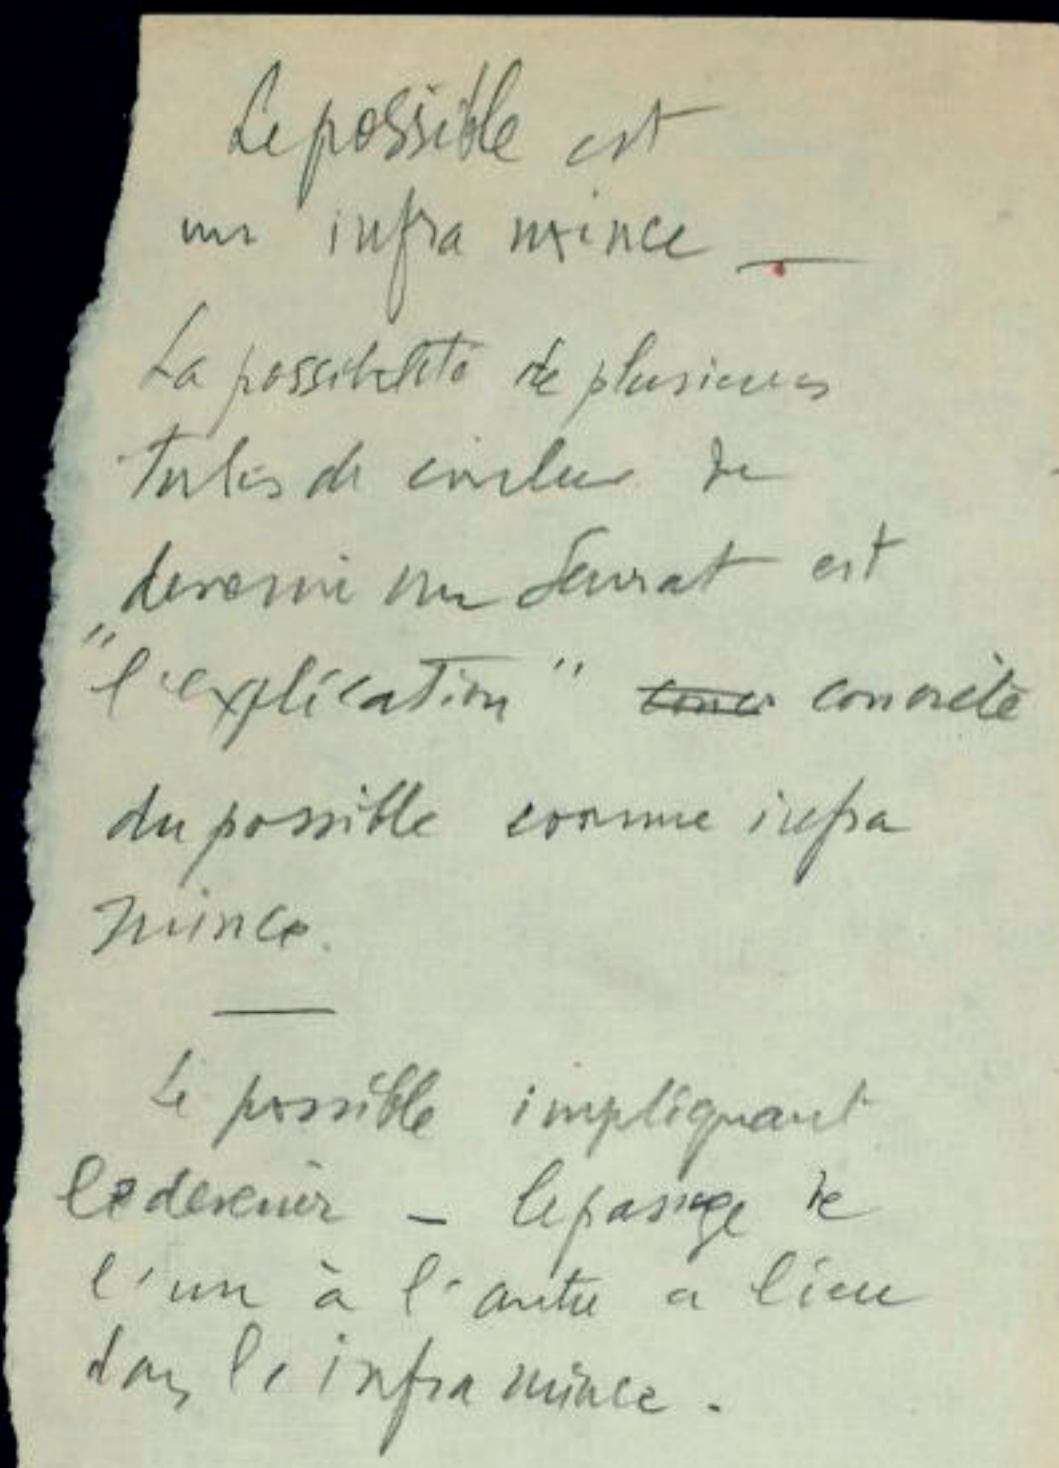 Le possible est
un infra mince —
La possibilité de plusieurs
tubes de couleur de
devenir un Seurat est
"l'explication" concrète
du possible comme infra
mince.
—
Le possible impliquant
le devenir – le passage de
l'un à l'autre a lieu
dans le infra mince.